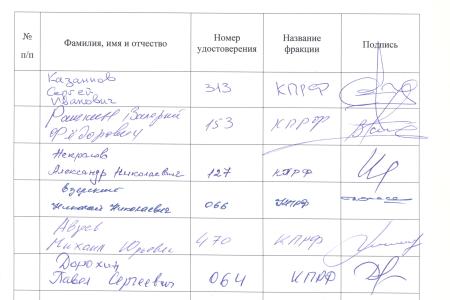 № п/п Фамилия, имя и отчество Номер удостоверения Название фракции Подпись
Казанков
Сергей 313 КПРФ
Иванович
Рашкин Валерий 153 КПРФ
Фёдорович
Некрасов
Александр Николаевич 127 КПРФ
Езерский
Николай Николаевич 066 КПРФ
Авдеев
Михаил Юрьевич 470 КПРФ
Дорохин
Павел Сергеевич 064 КПРФ